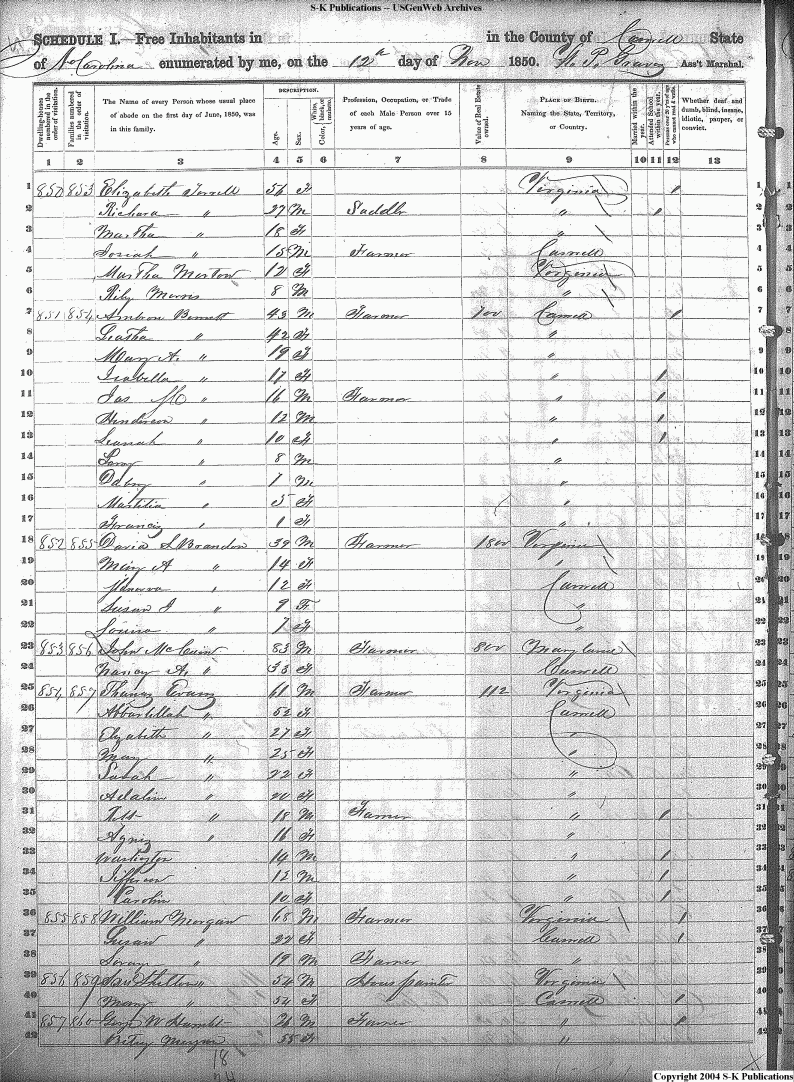 S-K Publications -- USGenWeb Archives
SCHEDULE I.—Free Inhabitants in in the County of Caswell State
of No Carolina enumerated by me, on the 12th day of Nov 1850. Ass't Marshal.
Dwelling-houses numbered in the order of visitation.
Families numbered in the order of visitation.
The Name of every Person whose usual place of abode on the first day of June, 1850, was in this family.
DESCRIPTION.
Age.
Sex.
Color, White, black, or mulatto.
Profession, Occupation, or Trade of each Male Person over 15 years of age.
Value of Real Estate owned.
PLACE OF BIRTH. Naming the State, Territory, or Country.
Married within the year.
Attended School within the year.
Persons over 20 y'rs of age who cannot read & write.
Whether deaf and dumb, blind, insane, idiotic, pauper, or convict.
1 2 3 4 5 6 7 8 9 10 11 12 13
1 850 853 Elizabeth 56 F Virginia / 1
2 Richard " 27 M Saddlr " / 2
3 Martha " 18 F " 3
4 Josiah " 15 M Farmer Caswell 4
5 Martha Morton 12 F Virginia 5
6 Rily Morris 8 M " 6
7 851 854 Bennett 43 M Farmer 700 Caswell / 7
8 Leatha " 42 F " 8
9 Mary A. " 19 F " 9
10 Isabella " 17 F " / 10
11 Jas. " 16 M Farmer " / 11
12 Henderson " 12 M " / 12
13 " 10 F " / 13
14 " 8 M 14
15 " 7 M " 15
16 " 5 F " 16
17 Francis " 1 F " 17
18 852 855 David S Brandon 39 M Farmer 1800 Virginia 18
19 Mary A " 14 F " 19
20 Manerva " 12 F Caswell 20
21 Susan J " 9 F " 21
22 Louisa " 7 F 22
23 853 856 John 83 M Farmer 800 Maryland 23
24 Nancy A. " 33 F Caswell 24
25 854 857 Evans 61 M Farmer 112 Virginia 25
26 " 52 F Caswell 26
27 Elizabeth " 27 F " 27
28 Mary " 25 F " 28
29 Sarah " 22 F " 29
30 Adalin " 20 F " 30
31 " 18 M Farmer " / 31
32 " 16 F " 32
33 Washington 14 M " / 33
34 Jefferson 12 M " / 34
35 Carolin 10 F " / 35
36 855 858 William Morgan 68 M Farmer Virginia / 36
37 Susan " 22 F Caswell / 37
38 " 19 M Farmer " 38
39 856 859 Shelton " 54 M House painter Virginia 39
40 Mary " 54 F Caswell / 40
41 857 860 Geo W 26 M Farmer " / 41
42 Betsy Morgan 55 F " 42
18
Copyright 2004 S-K Publications